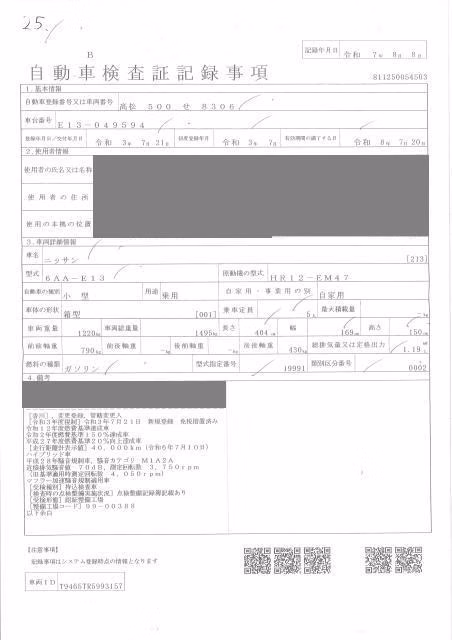 25.
B
記録年月日 令和 7年 8月 8日
自動車検査証記録事項
811250054503
1.基本情報
自動車登録番号又は車両番号 高松 500 せ 8306
車台番号 E13-049594
登録年月日/交付年月日 令和 3年 7月 21日 初度登録年月 令和 3年 7月 有効期間の満了する日 令和 8年 7月 20日
2.使用者情報
使用者の氏名又は名称
使用者の住所
使用の本拠の位置
3.車両詳細情報
車名 ニッサン [213]
型式 6AA-E13 原動機の型式 HR12-EM47
自動車の種別 小型 用途 乗用 自家用・事業用の別 自家用
車体の形状 箱型 [001] 乗車定員 5人 最大積載量 -kg
車両重量 1220kg 車両総重量 1495kg 長さ 404cm 幅 169cm 高さ 150cm
前前軸重 790kg 前後軸重 -kg 後前軸重 -kg 後後軸重 430kg 総排気量又は定格出力 1.19L
燃料の種類 ガソリン 型式指定番号 19991 類別区分番号 0002
4.備考
[香川],変更登録,管轄変更入
[令和3年度税制]令和3年7月21日 新規登録 免税措置済み
令和12年度燃費基準達成車
令和2年度燃費基準150%達成車
平成27年度燃費基準20%向上達成車
[走行距離計表示値]40,000km(令和6年7月10日)
ハイブリッド車
平成28年騒音規制車,騒音カテゴリ M1A2A
近接排気騒音値 70dB,測定回転数 3,750rpm
(旧基準適用時測定回転数 4,050rpm)
マフラー加速騒音規制適用車
[受検種別]持込検査車
[検査時の点検整備実施状況]点検整備記録簿記載あり
[受検形態]認証整備工場
[整備工場コード]99-00388
以下余白
【注意事項】
記録事項はシステム登録時点の情報となります
車両ID T9465TR5993157